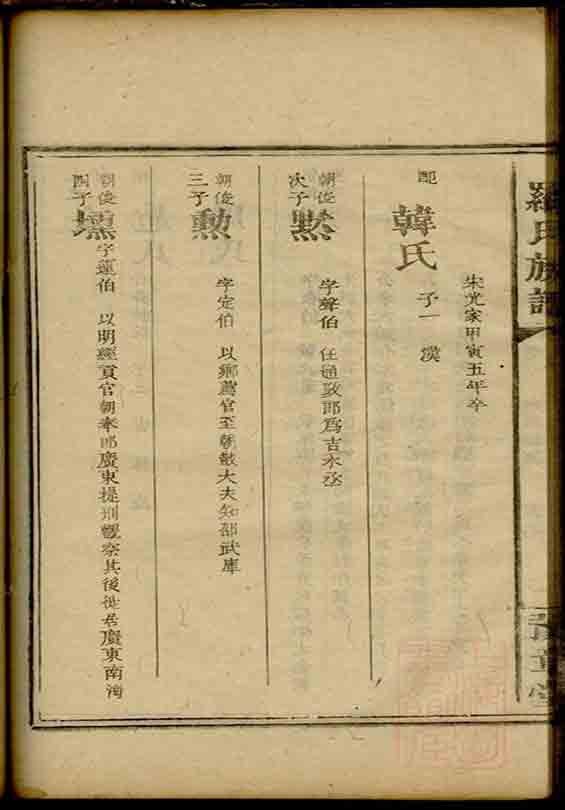 羅氏族譜
宋光宗甲寅五年卒
配 韓氏 子一 漢
朝俊次子 黙 字聲伯 任通政郎為吉水丞
朝俊三子 勲 字定伯 以鄉薦官至朝散大夫知邵武庫
朝俊四子 壎 字蓮伯 以明經貢官朝奉郎廣東提刑驗察其後徙居廣東南海